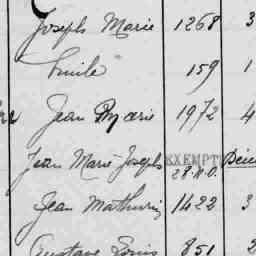 Joseph Marie 1268 3
Emile 159 1
Jean Marie 1972 4
Jean Marie Joseph EXEMPT
28.N.O.
Jean Mathurin 1422 3
Gustave Louis 851 2